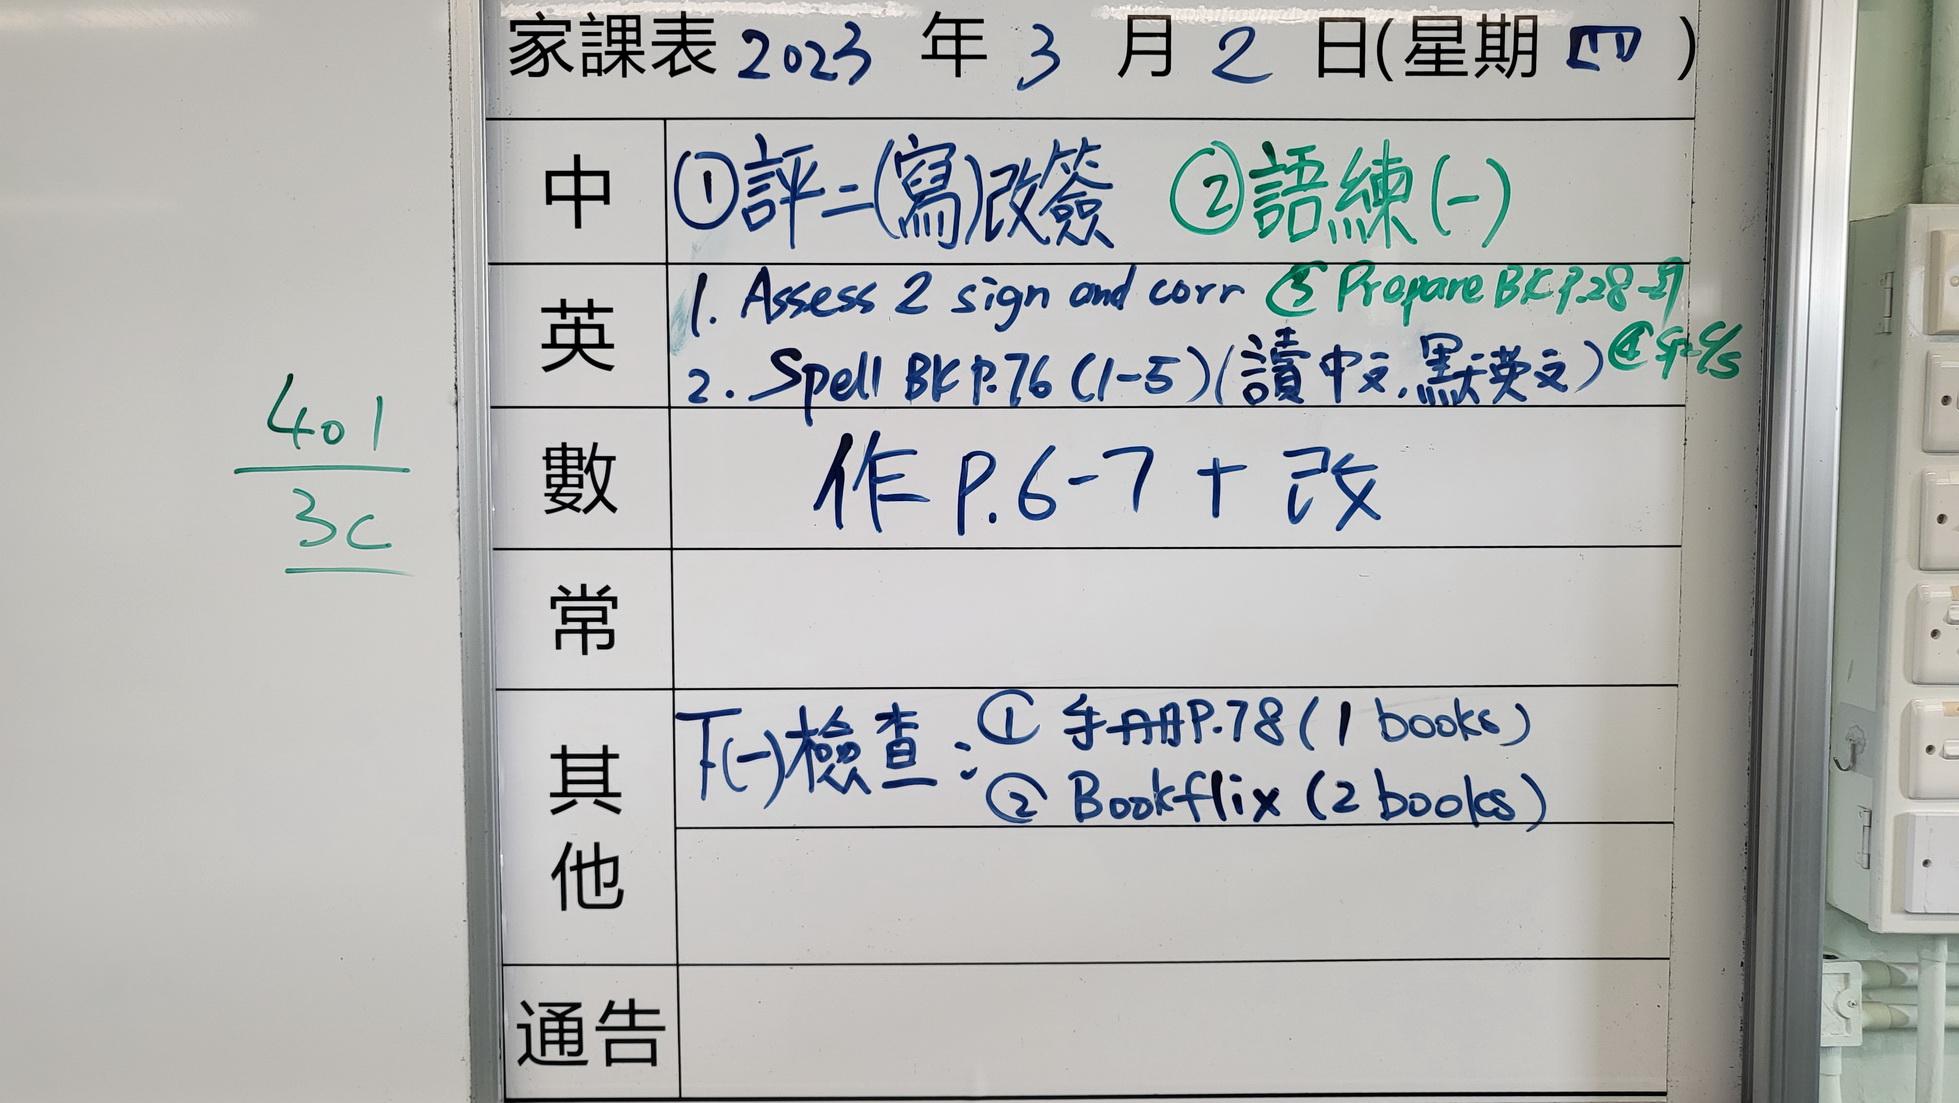 家課表 2023 年 3 月 2 日(星期 四 )
中 ①評二(寫)改簽 ②語練(一)
英 1. Assess 2 sign and corr ③ Prepare BK P.28-
2. Spell BK P.76 (1-5)(讀中文,默英文) ④
數 作 P.6-7 + 改
401
3C
常
其他 下(一)檢查: ① 手冊P.78 (1 books)
② Bookflix (2 books)
通告